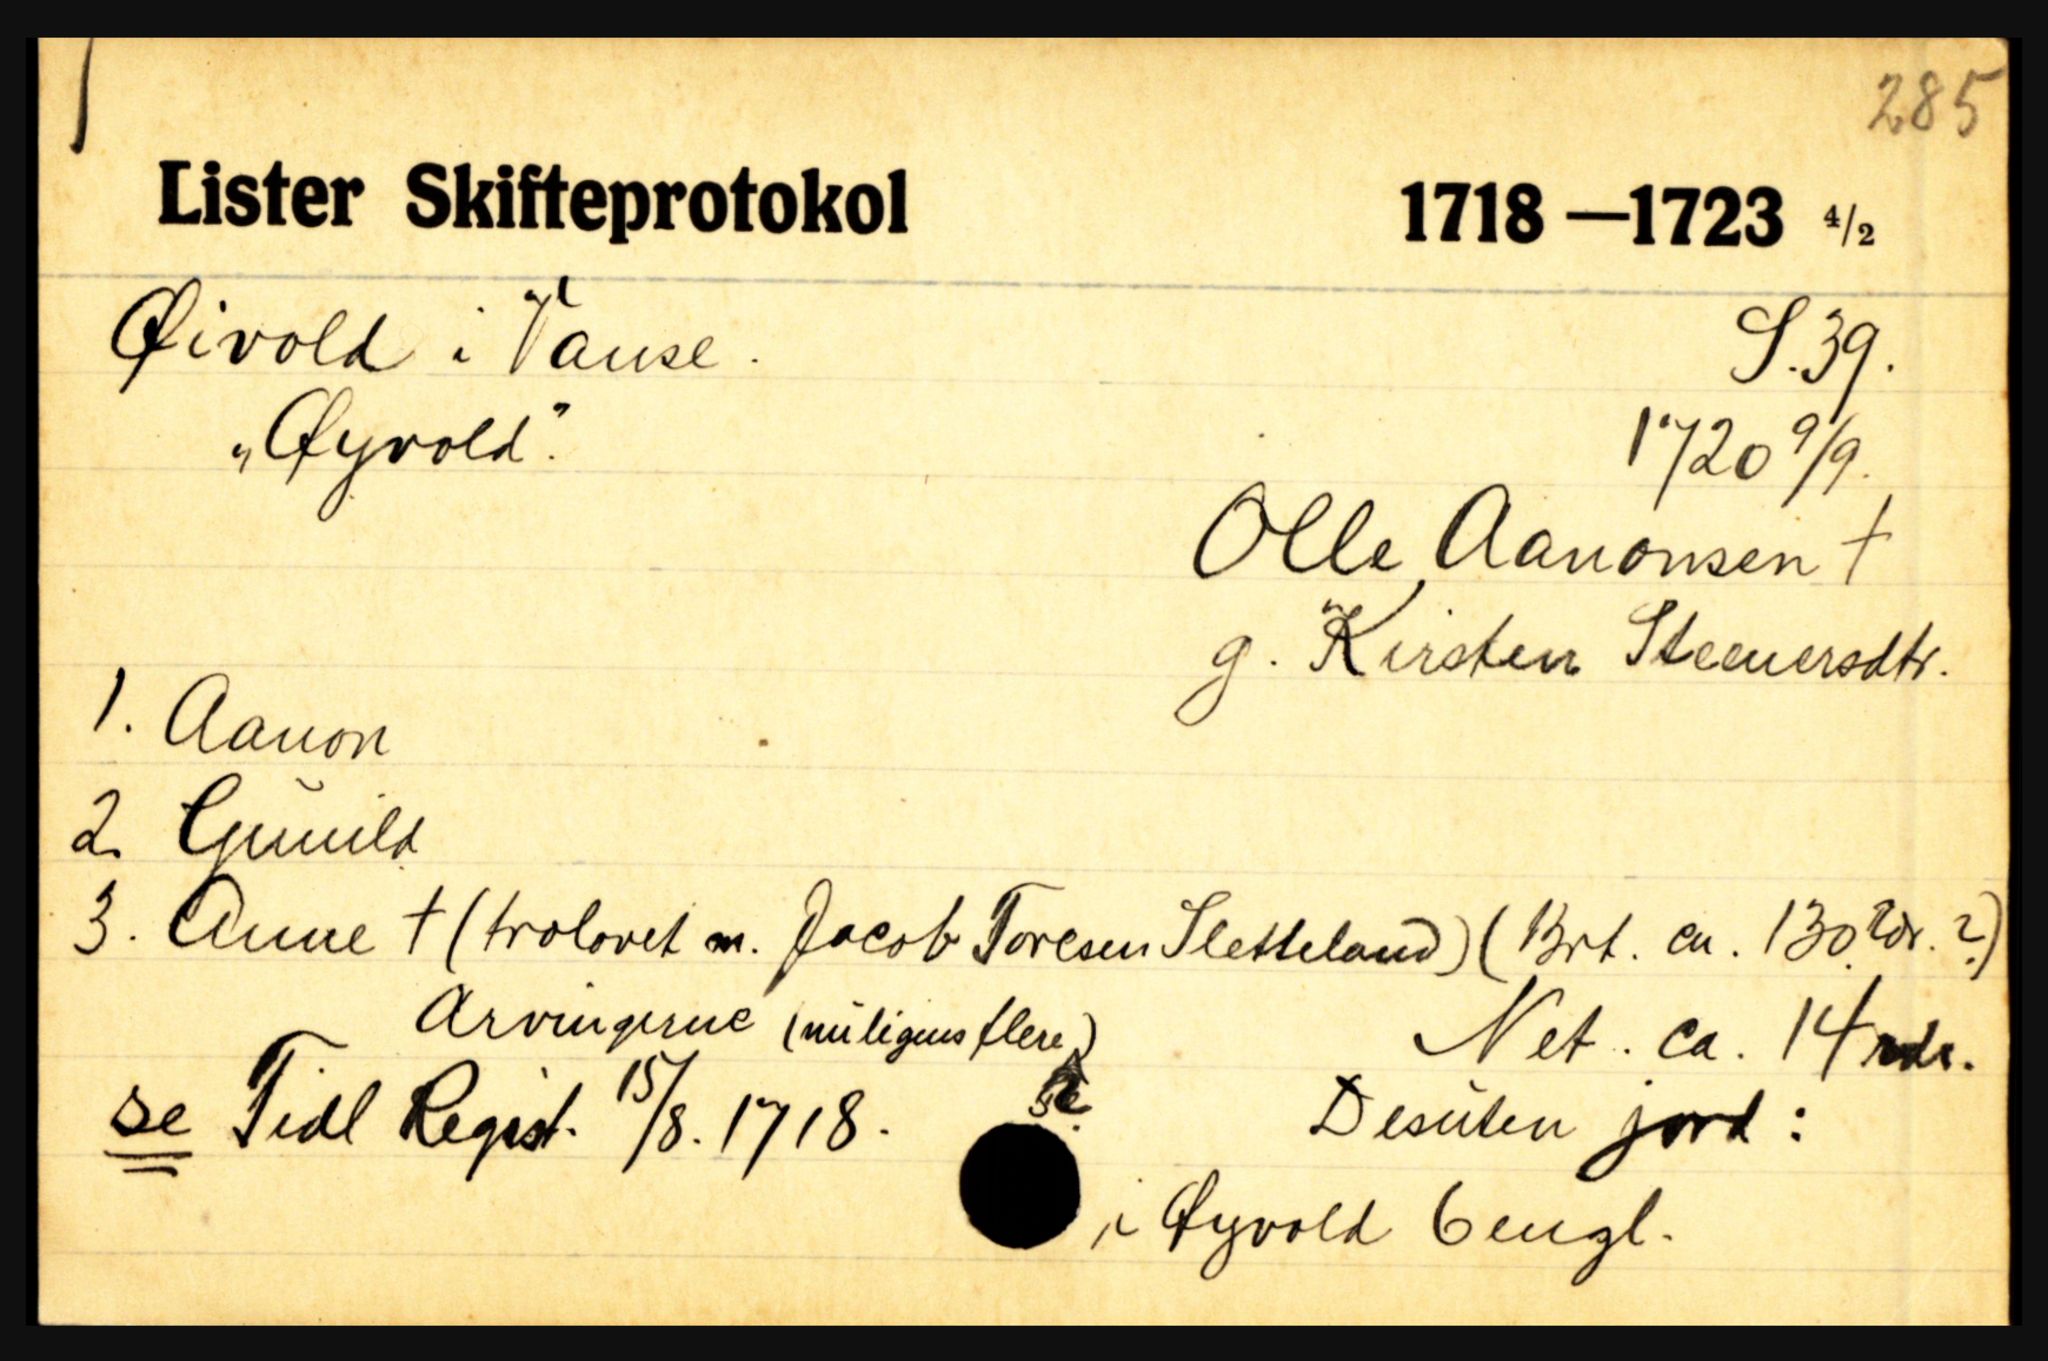 285
Lister Skifteprotokol 1718 — 1723 4/2
Øivold i Vanse. S. 39.
"Øyvold". 1720 9/9.
Olle Aanonsen †
g. Kirsten Steenersdtr.
1. Aanon
2. Gunild
3. Anne † (trolovet m. Jacob Toresen Sletteland) (Brt. ca. 130 Rdr. ?)
Arvingerne (muligens flere) Net. ca. 14 rdr.
se Tidl Regist. 15/8. 1718. Desuten jord:
i Øyvold 6 engl.